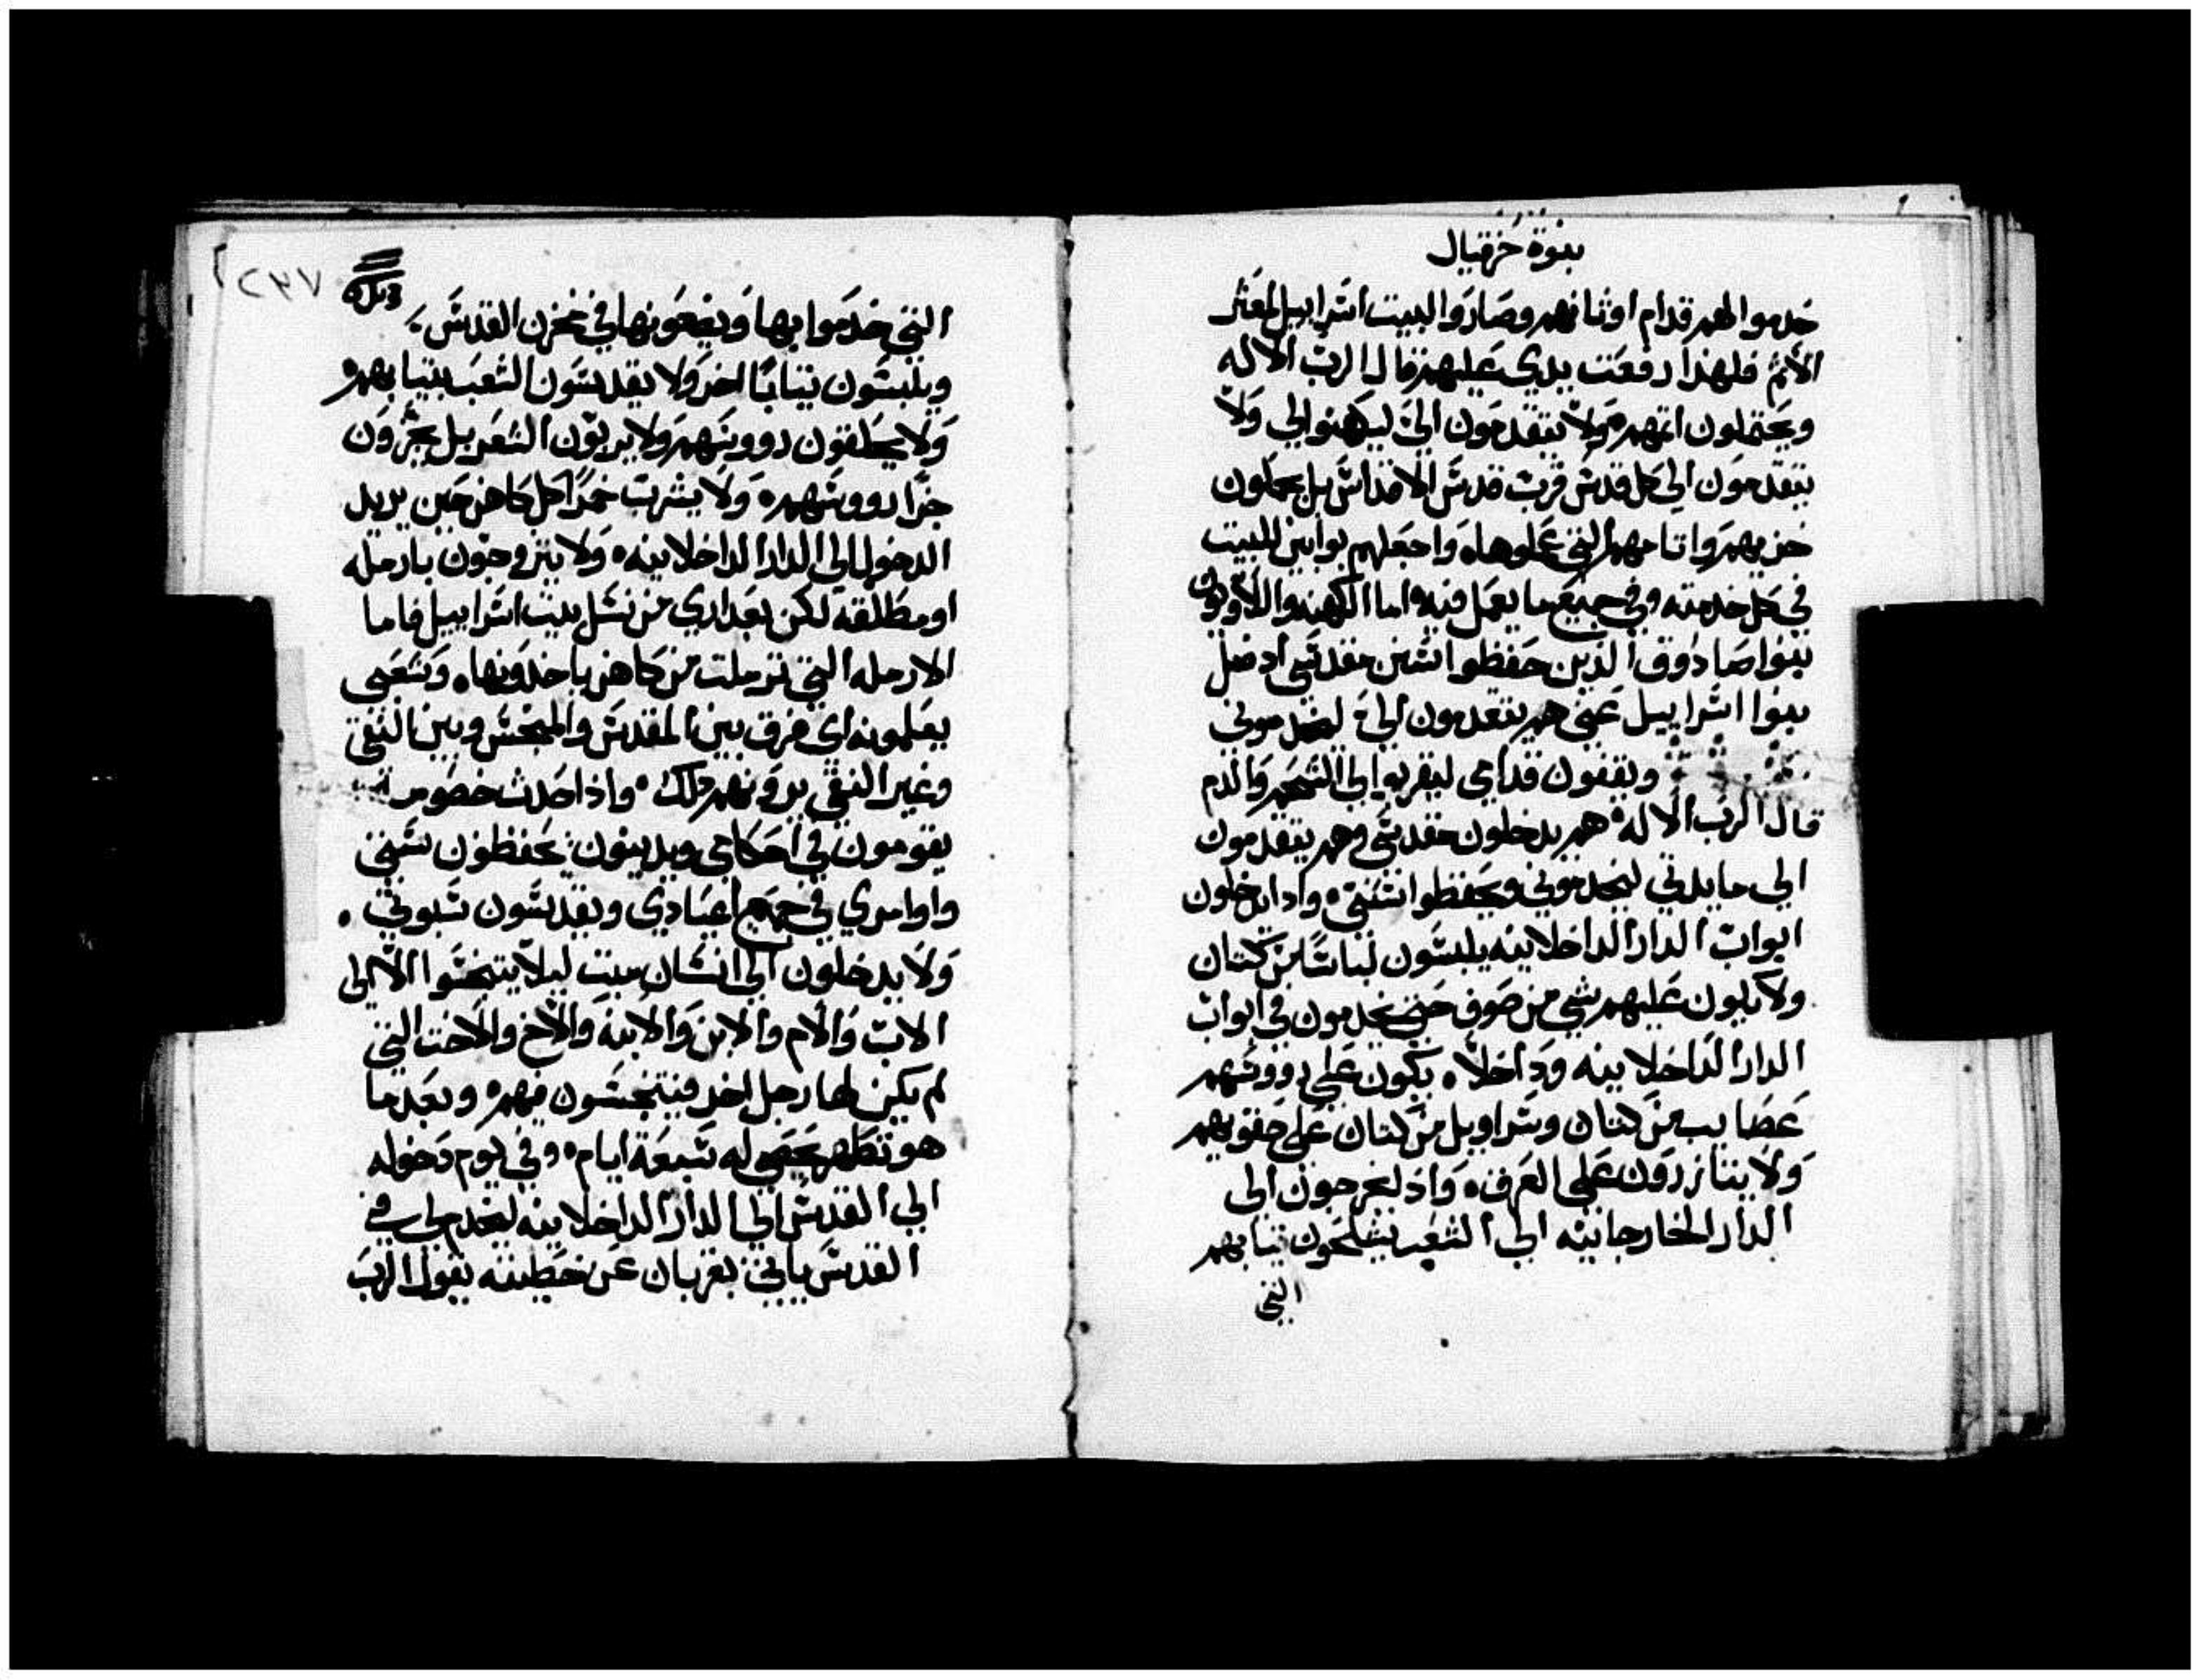 نبوة حزقيال
خدموا لهم قدام اوثانهم وصاروا لبيت اسراييل لمعثر
الأمم فلهذا رفعت يدي عليهم قال الرب الاله
ويحتملون اتمهم ولا يتقدمون اليّ ليكهنوا لي ولا
يتقدمون الي كل قدس قرب قدس الاقداس بل يحملون
خزيهم واتامهم التي عملوها واجعلهم بوابين للبيت
في كل خدمته وفي جميع ما يعمل فيه اما الكهنه واللاويون
بنوا صادوق الذين حفظوا سنن مقدسي اد ضل
بنوا اسراييل عني هم يتقدمون اليّ ليخدموني
ويقفون قدامي ليقربوا لي الشحم والدم
قال الرب الاله هم يدخلون مقدسي وهم يتقدمون
الي مايدتي ليخدموني ويحفظوا سنني وادا يدخلون
ابواب الدار الداخلانيه يلبسون لباسًا من كتان
ولا يكون عليهم شي من صوف حتي يخدمون في ابواب
الدار الداخلانيه وداخلاً يكون علي رووسهم
عصايب من كتان وسراويل من كتان علي حقويهم
ولا يتازرون علي العرق واذ يخرجون الي
الدار الخارجانيه الي الشعب يشلحون تيابهم
التي
٢٣٧
التي خدموا بها ويضعونها في مخزن القدس
ويلبسون تيابًا اخر ولا يقدسون الشعب بتيابهم
ولا يحلقون رووسهم ولا يربون الشعر بل يجزون
جزًا رووسهم ولا يشرب خمرًا كل كاهن حين يريد
الدخول الي الدار الداخلانيه ولا يتزوجون بارمله
او مطلقه لكن بعداري من نسل بيت اسراييل فاما
الارمله التي ترملت من كاهن ياخدونها وشعبي
يعلمونه اي فرق بين المقدس والمنجس وبين النقي
وغير النقي يرونهم ذلك واذا حدث خصومه
يقومون في احكامي ويدينون يحفظون سنني
واوامري في جميع اعيادي ويقدسون سبوتي
ولا يدخلون الي انسان ميت ليلا يتنجسوا الا الي
الاب والام والابن والابنه والأخ والاخت التي
لم يكن لها رجل اخر فيتنجسون فيهم وبعد ما
هو تطهر يحصي له سبعة ايام وفي يوم دخوله
الي القدس الي الدار الداخلانيه ليخدم لي في
القدس ياتي بقربان عن خطيته يقول الرب